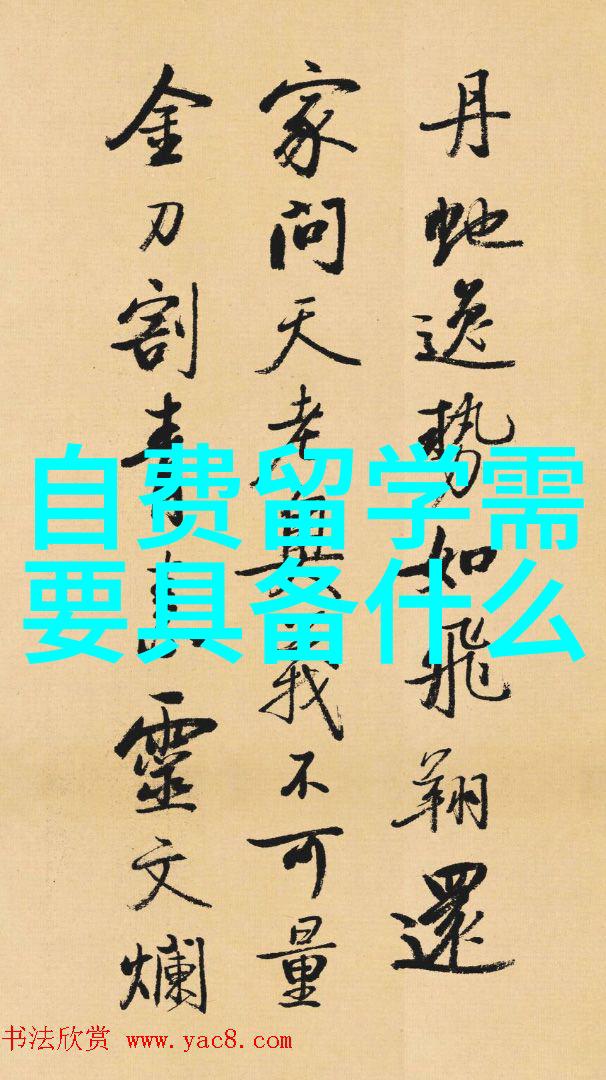 丹虵逸勢如飛翔還
家問天老奥義不可量
金刀割青素靈文爛
自费留学需
要具备什么
书法欣赏 www.yac8.com